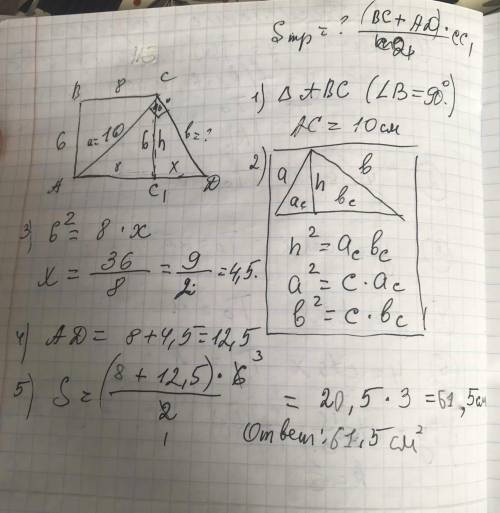 Sтр = ? (BC + AD) · CC₁ / 2
B 8 C
6 a=10 6 h b=?
A 8 C₁ x D
1) Δ ABC (∠B=90°)
AC = 10 см
2)
a h b
ac bc
h² = ac bc
a² = c · ac
b² = c · bc
3) 6² = 8 · x
x = 36/8 = 9/2 = 4,5.
4) AD = 8+4,5=12,5
5) S = (8 + 12,5) · 6 3 / 2 1 = 20,5 · 3 = 61,5см
Ответ: 61,5 см²